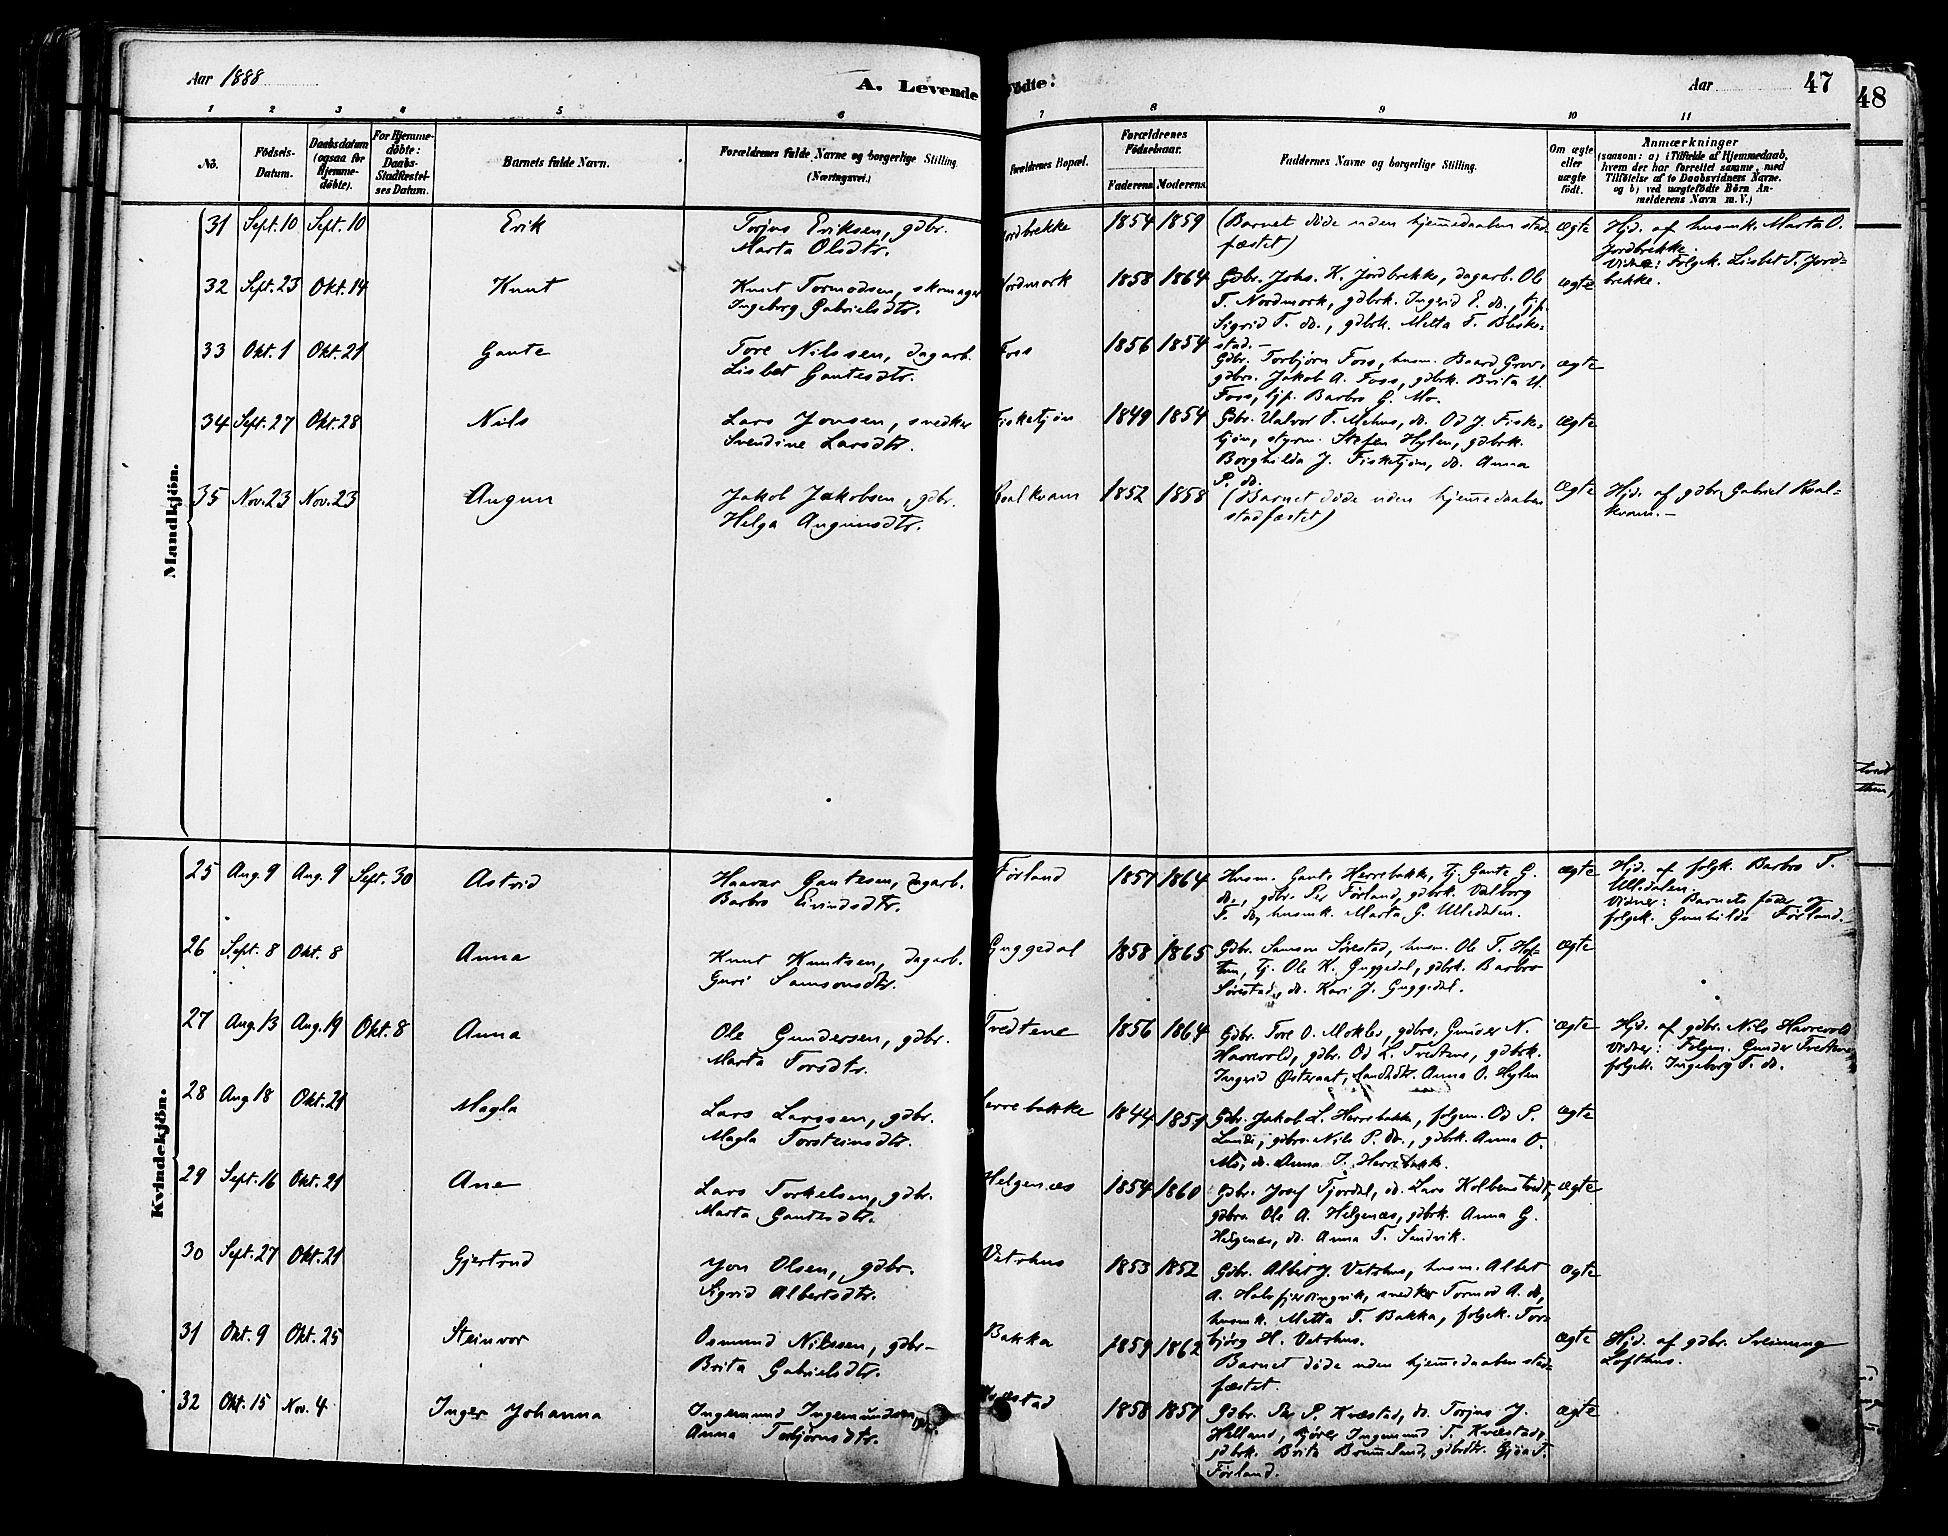 Aar 1888
A. Levende Fødte.
Aar
47
48
1 2 3 4 5 6 7 8 9 10 11
No.
Fødsels-Datum.
Daabsdatum (ogsaa for Hjemmedøbte).
For Hjemmedøbte: Daabs-Stadfæstelses Datum.
Barnets fulde Navn.
Forældrenes fulde Navne og borgerlige Stilling (Næringsvei.)
Forældrenes Bopæl.
Forældrenes Fødselsaar.
Faderens. Moderens.
Faddernes Navne og borgerlige Stilling.
Om ægte eller uægte født.
Anmærkninger
(saasom: a) i Tilfælde af Hjemmedaab,
hvem der har forrettet samme, med
Tilføielse af to Daabsvidners Navne.
og b) ved uægtefødte Børn An-
melderens Navn m.V.)
Mandkjön.
31 Sept. 10 Sept. 10 Erik
Torjus Eriksen, gdbr.
Marta Olsdtr.
Jordbrekke 1854 1859
(Barnet døde uden hjemmedaaben stad-
fæstet)
ægte
Hjd. af husmk. Marta O.
Jordbrekke.
Vidne: Følgek. Lisbet T. Jord-
brekke.
32 Sept. 23 Okt. 14 Knut
Knut Tormodsen, skomager
Ingeborg Gabrielsdtr.
Nordmork 1858 1864
Gdbr. Johs. K. Jordbrekke, dagarb. Ole
T. Nordmork, gdbrk. Ingrid E. do., tjp.
Sigrid T. do., gdbrk. Metta T.
stad.—
ægte
33 Okt. 1 Okt. 21 Gaute
Tore Nilssen, dagarb.
Lisbet Gautesdtr.
Foss 1856 1854
Gdbr. Torbjørn Foss, husm. Baard Grov,
gdbrs. Jakob A. Foss, gdbrk. Brita
Foss, tjp. Barbro G. Mo.
ægte
34 Sept. 27 Okt. 28 Nils
Lars Jonsen, snedker
Svendine Larsdtr.
Fisketjøn 1849 1854
Gdbr. Halvor T. Mehus, do. Od J. Fiske-
tjøn, styrm. Stefen Hylen, gdbrk.
Borghilda J. Fisketjøn, do. Anna
P. do.
ægte
35 Nov. 23 Nov. 23 Augun
Jakob Jakobsen, gdbr.
Helga Augunsdtr.
Roalkvam 1852 1858
(Barnet døde uden hjemmedaaben
stadfæstet)
ægte
Hjd. af gdbr. Gabriel Roal-
kvam.—
Kvindekjön.
25 Aug. 9 Aug. 9 Sept. 30 Astrid
Haavar Gautesen, dagarb.
Barbro Eivindsdtr.
Førland 1857 1864
Husm. Gaute Herrebakke, tj. Gaute G.
do., gdbr. Per Førland, gdbrk. Valborg
T. do., husmk. Marta G. Ulledalen.
ægte
Hjd. af følgk. Barbro T.
Ulledalen.
Vidner: Barnets fader og
følgek. Gunhilda Førland.
26 Sept. 8 Okt. 8 Anna
Knut Knutsen, dagarb.
Guri Samsonsdtr.
Guggedal 1858 1865
Gdbr. Samson Sørestad, husm. Ole T. Hof-
tun, tj. Ole K. Guggedal, gdbrk. Barbro
Sørestad, do. Kari J. Guggedal.
ægte
27 Aug. 13 Aug. 19 Okt. 8 Anna
Ole Gundersen, gdbr.
Marta Torsdtr.
Tredtene 1856 1864
Gdbr. Tore O. Mokleb, gdbrs. Gunder N.
Harrevold, gdbr. Od L. Tredtene, gdbrk.
Ingrid Østeraat, landhdtr. Anna O. Hylen
ægte
Hjd. af gdbr. Nils Harrevold
Vidner: Følgem. Gunder Tredtene,
følgek. Ingeborg T. do.
28 Aug 18 Okt. 21 Magla
Lars Larssen, gdbr.
Magla Torsteinsdtr.
Herrebakke 1844 1857
Gdbr. Jakob L. Herrebakke, følgem. Od P.
Lunde, gdbrs. Nils P. do., gdbrk. Anna O.
Mo, do. Anna J. Herrebakk.
ægte
29 Sept. 16 Okt. 21 Ane
Lars Torkelsen, gdbr.
Marta Gautesdtr.
Helgenæs 1854 1860
Gdbr. Josef Fjordal, do. Lars Kolbenstvedt,
gdbrs. Ole A. Helgenæs, gdbrk. Anna G.
Helgenæs, do. Anna T. Sandvik.
ægte
30 Sept. 27 Okt. 21 Gjertrud
Jon Olsen, gdbr.
Sigrid Albertsdtr.
Vetrhus 1853 1852
Gdbr. Albert J. Vetrhus, husm. Albet
A. Halvfjerdingvik, snedker Tormod A. do,
husmk. Metta T. Bakka, følgek. Tor-
bjørg H. Vetrhus.
ægte
31 Okt. 9 Okt. 25 Steinvor
Osmund Nilssen, gdbr—
Brita Gabrielsdtr.
Bakka 1859 1862
Barnet døde uden hjemmedaaben stad-
fæstet.
ægte
Hjd. af gdbr. Sveinung
Lofthus.
32 Okt. 15 Nov. 4 Inger Johanna
Ingemund Ingemundsen,
Anna Torbjørnsdtr.
1858 1857
Gdbr. Per P. Kvæstad, do. Torjus J.
Helland, Ingemund T. Kvæstad,
gdbrk. Brita Brommeland, gdbrdtr. Gjøa T.
Førland.
ægte